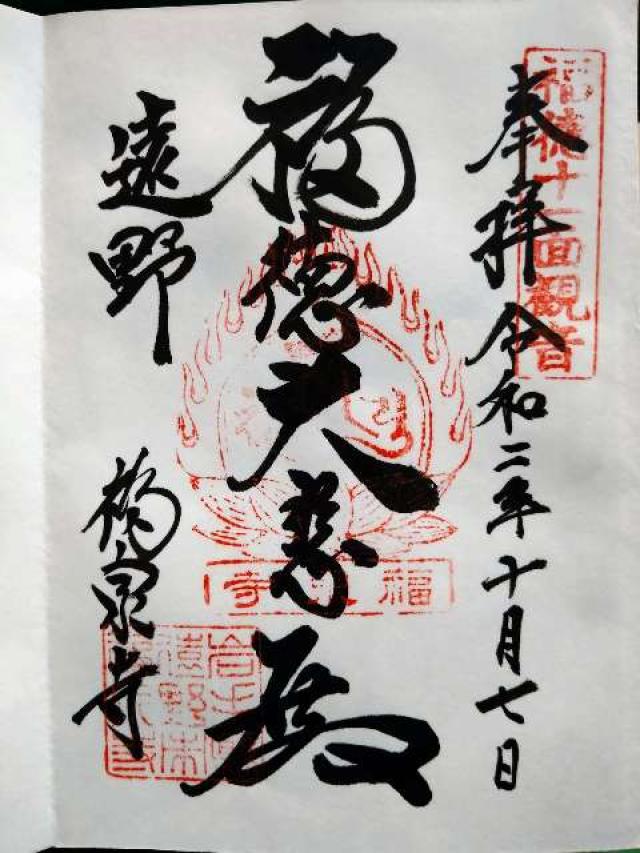 奉拝 令和二年十月七日
福徳十一面観音
福徳大悲殿
福泉寺
遠野
福泉寺